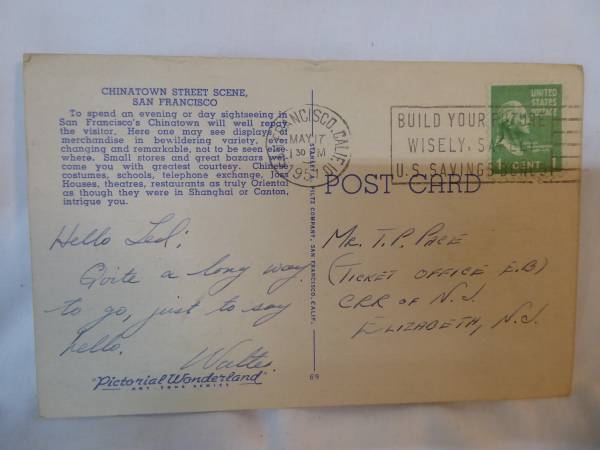 CHINATOWN STREET SCENE,
SAN FRANCISCO
To spend an evening or day sightseeing in
San Francisco's Chinatown will well repay
the visitor. Here one may see displays of
merchandise in bewildering variety, ever
changing and remarkable, not to be seen else-
where. Small stores and great bazaars wel-
come you with greatest courtesy. Chinese
costumes, schools, telephone exchange, Joss
Houses, theatres, restaurants as truly Oriental
as though they were in Shanghai or Canton,
intrigue you.
Hello Ted;
Quite a long way
to go, just to say
hello.
Walter
"Pictorial Wonderland"
ART TONE SERIES
STANLEY A. PILTZ COMPANY, SAN FRANCISCO, CALIF.
69
FRANCISCO, CALIF.
MAY 17
1 30 PM
UNITED
STATES
1 CENT 1
BUILD YOUR FUTURE
WISELY,
U.S. SAVINGS
POST CARD
MR. T. P. PACE
(TICKET OFFICE E.B)
CRR OF N.J.
ELIZABETH, N.J.